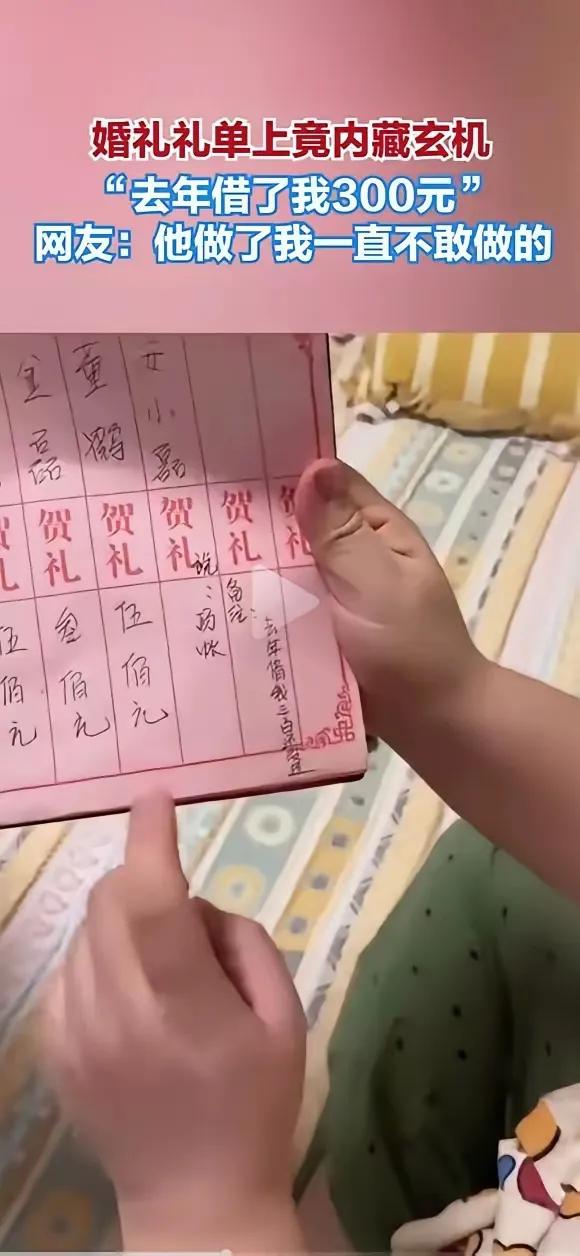 婚礼礼单上竟内藏玄机
“去年借了我300元”
网友：他做了我一直不敢做的
磊
董
小磊
贺礼
贺礼
贺礼
贺礼
伍佰元
叁佰元
伍佰元
备注：
去年借我三百